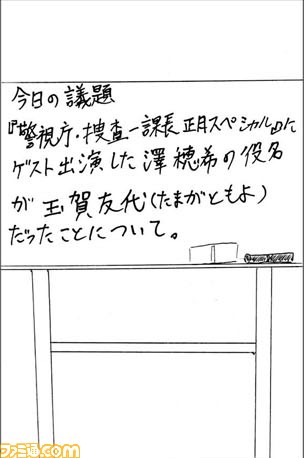 今日の議題
『警視庁・捜査一課長 正月スペシャル』に
ゲスト出演した澤穂希の役名
が 玉賀友代(たまがともよ)
だったことについて。
ファミ通.com